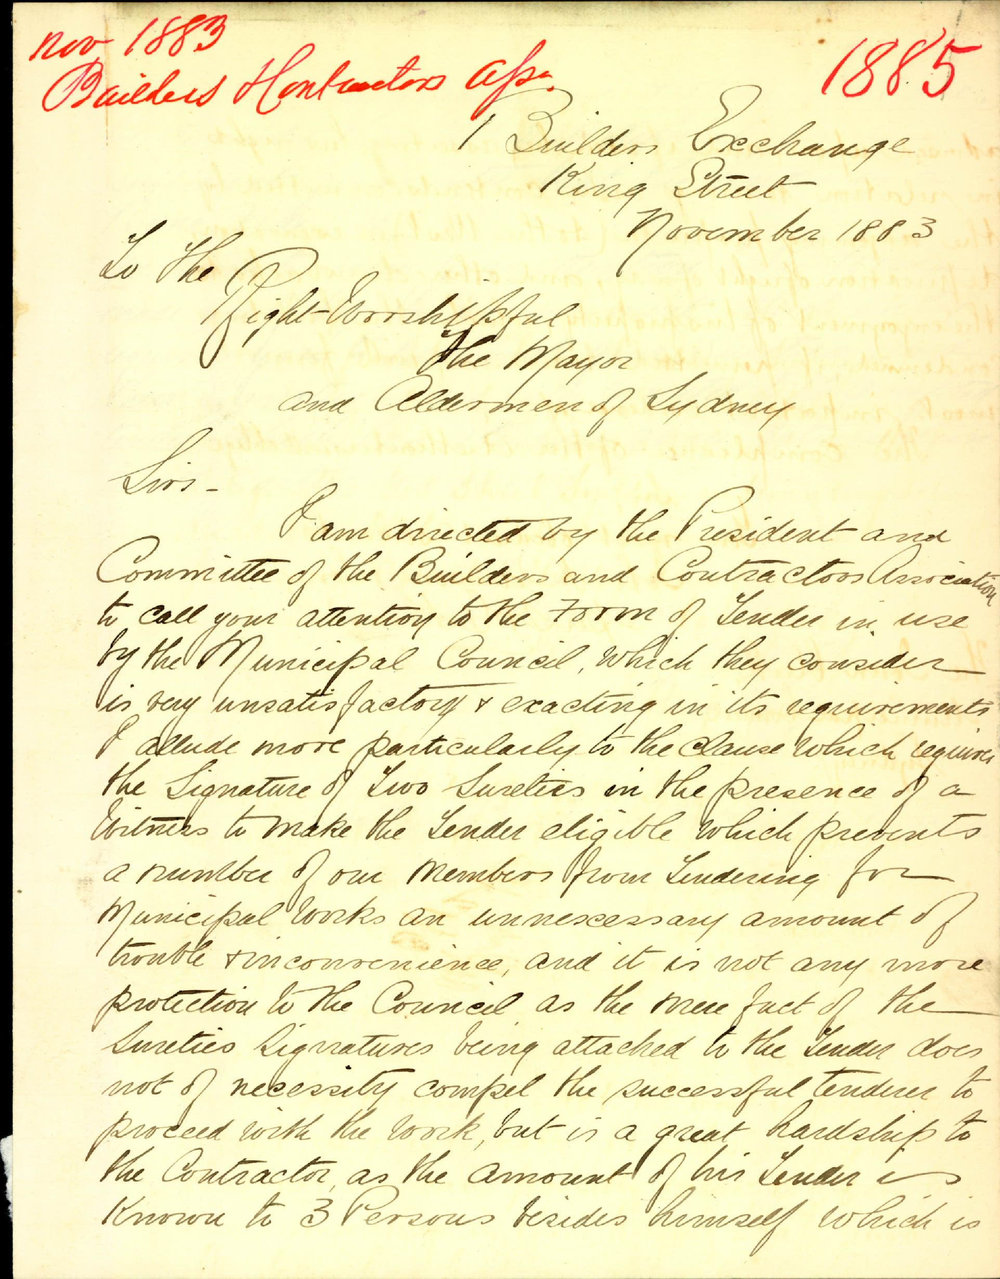 Nov 1883
1885
Builders & Contractors Assn.
1 Builders Exchange
King Street
November 1883
To The
Right Worshipful
The Mayor
and Aldermen of Sydney
Sirs -
I am directed by the President and
Committee of the Builders and Contractors Association
to call your attention to the Form of Tender in use
by the Municipal Council, which they consider
is very unsatisfactory & exacting in its requirements
I allude more particularly to the clause which requires
the Signature of Two Sureties in the presence of a
Witness to make the Tender eligible which prevents
a number of our Members from Tendering for
Municipal Works an unnescessary amount of
trouble & inconvenience, and it is not any more
protection to the Council as the mere fact of the
Sureties Signatures being attached to the Tender does
not of necessity compel the successful tenderer to
proceed with the work, but is a great hardship to
the Contractor, as the amount of his Tender is
Known to 3 Persons besides himself which is